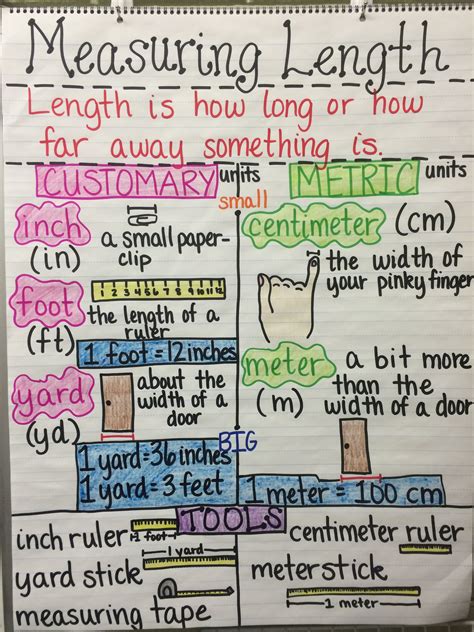 Measuring Length
Length is how long or how
far away something is.
CUSTOMARY units
small
inch
(in)
a small paper-
clip
foot
(ft)
1 2 3 4 5 6 7 8 9 10 11 12
the length of a
ruler
1 foot = 12 inches
yard
(yd)
about the
width of a
door
1 yard = 36 inches
1 yard = 3 feet
BIG
METRIC units
centimeter (cm)
the width of
your pinky finger
meter
(m)
a bit more
than the
width of a door
1 meter = 100 cm
TOOLS
inch ruler
1 foot
yard stick
1 yard
measuring tape
centimeter ruler
meterstick
1 meter